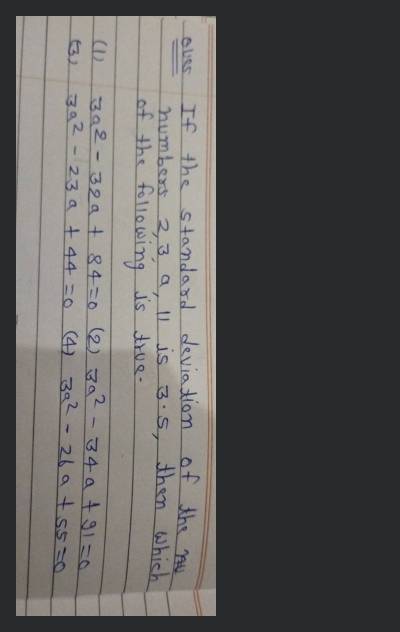 Ques If the standard deviation of the nu
numbers 2, 3, a, 11 is 3.5, then which
of the following is true.
(1) 3a² - 32a + 84=0 (2) 3a² - 34a + 91=0
(3) 3a² - 23a + 44=0 (4) 3a² - 26a + 55=0